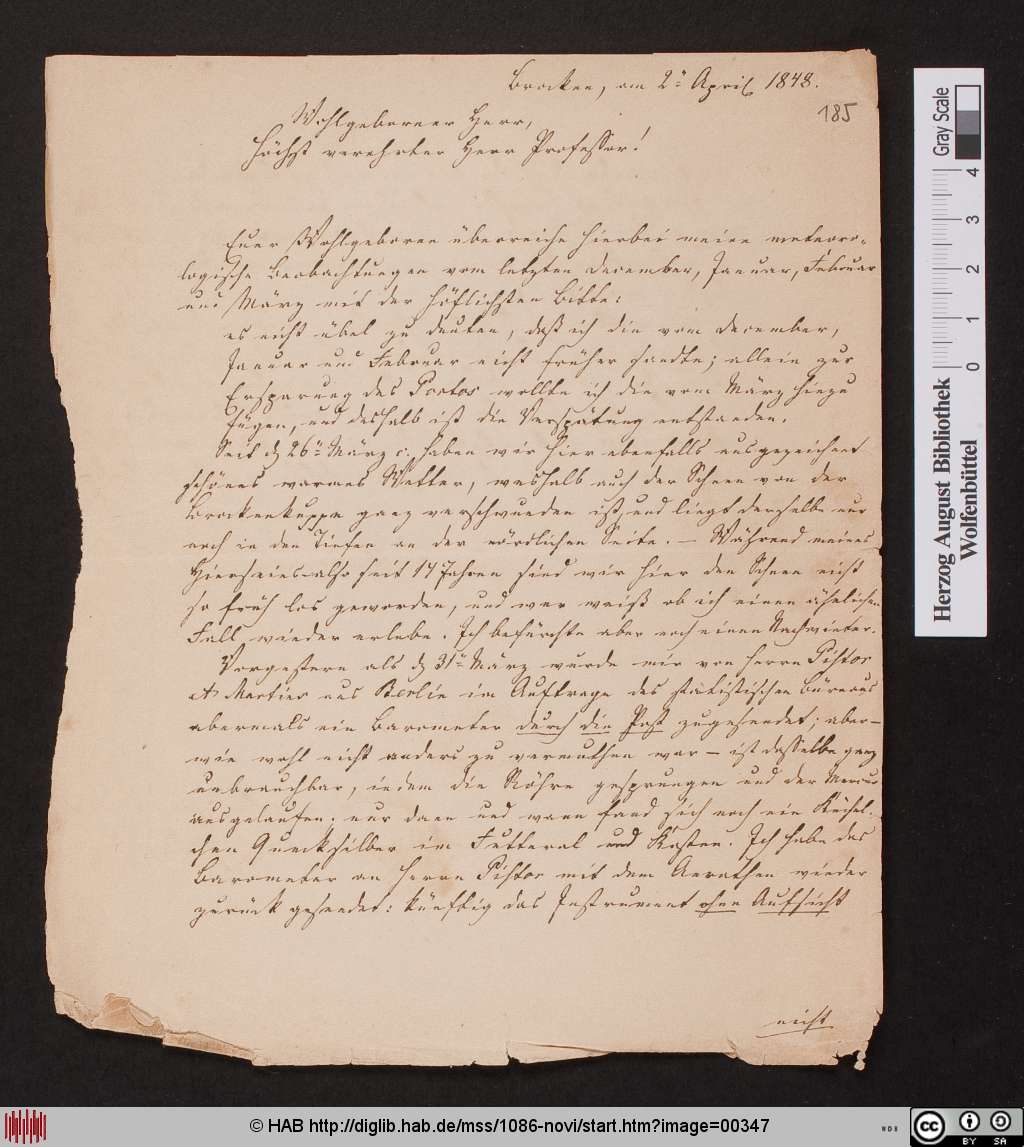 Brocken, am 2n April 1848.
185
Wohlgeborner Herr,
Höchst verehrter Herr Professor!
Euer Wohlgeboren überreiche hierbei meine meteoro-
logische Beobachtungen vom letzten December, Januar, Februar
und März mit der höflichsten Bitte:
es nicht übel zu deuten, daß ich die vom December,
Januar und Februar nicht früher sandte; allein zur
Ersparung des Portos wollte ich die vom März hinzu
fügen, und deshalb ist die Verspätung entstanden.
Seit d 26n März c. haben wir hier ebenfalls ausgezeichnet
schönes warmes Wetter, weshalb auch der Schnee von der
Brockenkuppe ganz verschwunden ist, und liegt derselbe nur
noch in den Tiefen an der nördlichen Seite. – Während meines
Hierseins also seit 14 Jahren sind wir hier den Schnee nicht
so früh los geworden, und wer weiß ob ich einen ähnlichen
Fall wieder erlebe. Ich befürchte aber noch einen Nachwinter.
Vorgestern als d 31n März wurde mir von Herrn Pistor
et Martins aus Berlin im Auftrage des statistischen Büreaus
abermals ein Barometer durch die Post zugesendet; aber –
wie wohl nicht anders zu vermuthen war – ist dasselbe ganz
unbrauchbar, indem die Röhre gesprungen und der Mercur
ausgelaufen. nur dann und wann fand sich noch ein Kügel-
chen Quecksilber im Futteral und Kasten. Ich habe das
Barometer an Herrn Pistor mit dem Anrathen wieder
zurück gesendet: künftig das Instrument ohne Aufsicht
nicht
Gray Scale
0 1 2 3 4
Herzog August Bibliothek
Wolfenbüttel
© HAB http://diglib.hab.de/mss/1086-novi/start.htm?image=00347
WDB
cc BY SA